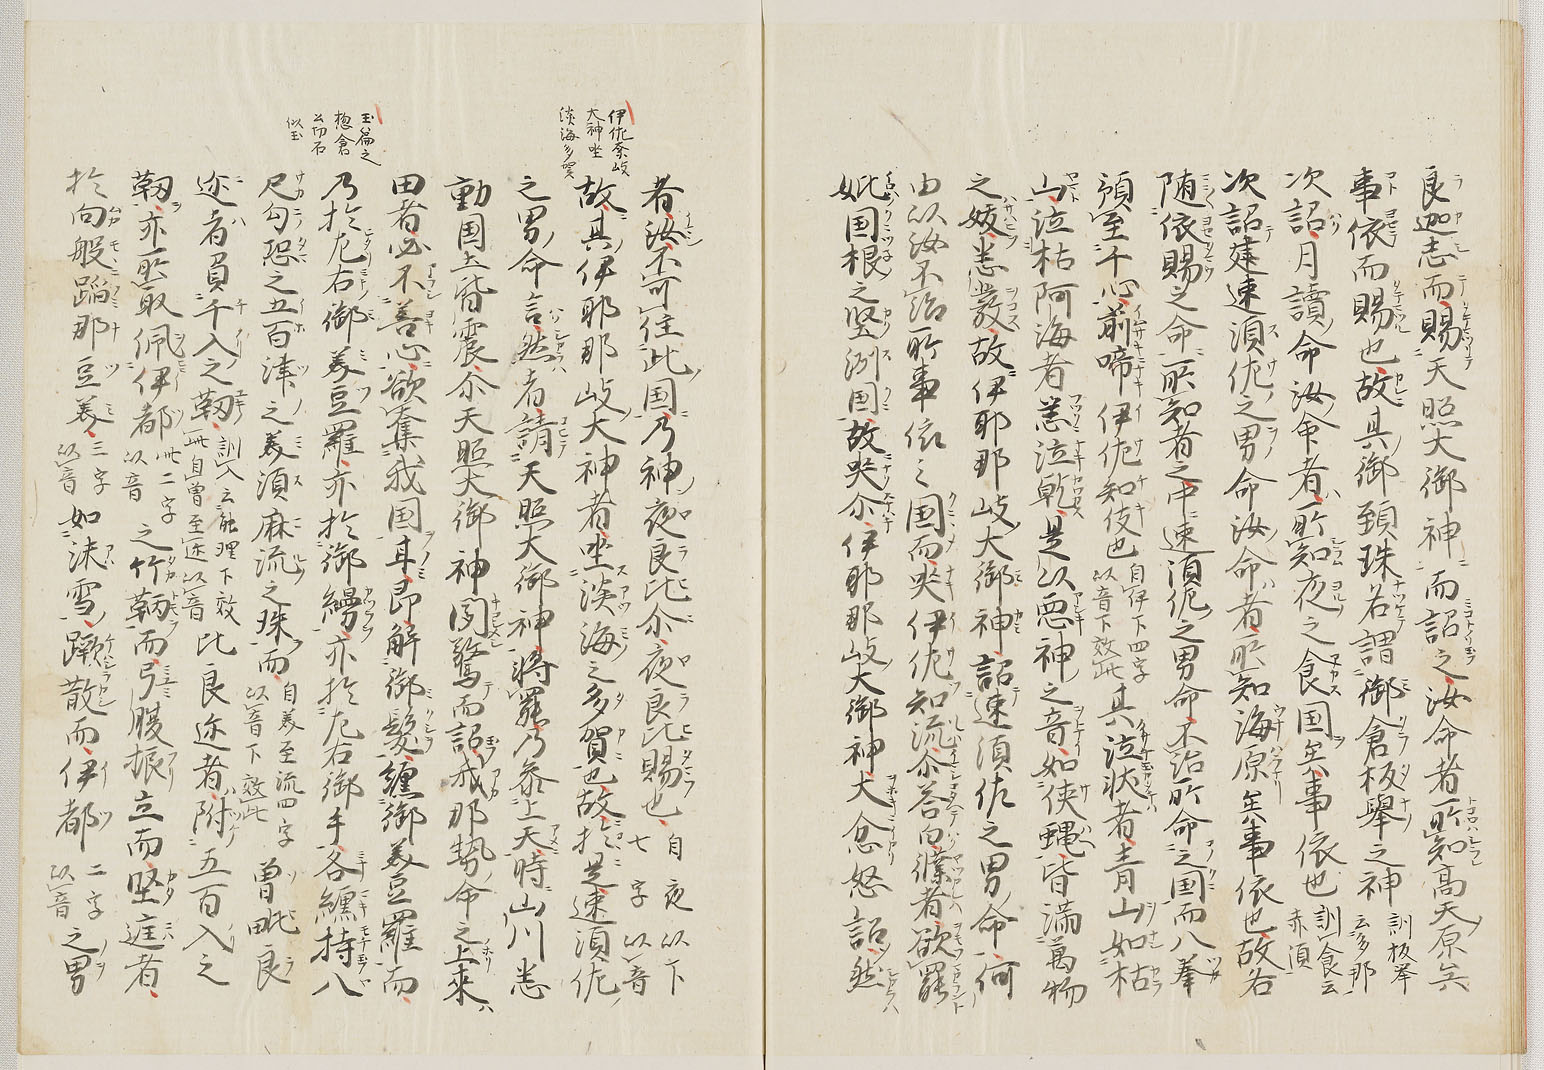 良迦志而賜天照大御神而詔之汝命者所知高天原矣
事依而賜也故其御頚珠名謂御倉板挙之神訓板挙云多那
次詔月讀命汝命者所知夜之食国矣事依也訓食云赤須
次詔建速須佐之男命汝命者所知海原矣事依也故各
随依賜之命所知者之中速須佐之男命不治所命之国而八拳
須至于心前啼伊佐知伎也自伊下四字以音下效此其泣状者青山如枯
山泣枯河海者悉泣乾是以悪神之音如狭蝿皆満萬物
之妖悉發故伊耶那岐大御神詔速須佐之男命何
由以汝不治所事依之国而哭伊佐知流尓答白僕者欲罷
妣国根之堅洲国故哭尓伊耶那岐大御神大忿怒詔然
者汝不可住此国乃神夜良比尓夜良比賜也自夜以下七字以音
故其伊耶那岐大神者坐淡海之多賀也故於是速須佐
之男命言然者請天照大御神将罷乃参上天時山川悉
動国土皆震尓天照大御神聞驚而詔我那勢命之上来
田者必不善心欲奪我国耳即解御髪纏御美豆羅而
乃於左右御美豆羅亦於御縵亦於左右御手各纏持八
尺勾璁之五百津之美須麻流之珠而自美至流四字以音下效此曽毗良
迩者負千入之靫訓入云能理下效此自曽至迩以音比良迩者附五百入之
靫亦所取佩伊都此二字以音之竹鞆而弓腹振立而堅庭者
於向股蹈那豆美三字以音如沫雪蹶散而伊都二字以音之男
伊佐奈岐
大神坐
淡海多賀
玉篇之
璁倉
公切石
似玉